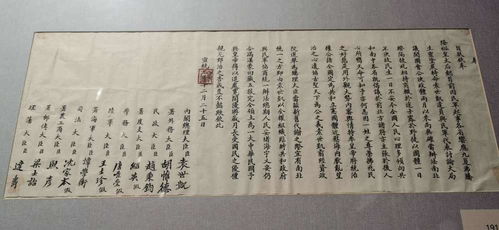 奉
旨朕欽奉
隆裕皇太后懿旨前因民軍起事各省響應九夏沸騰
生靈塗炭特命袁世凱遣員與民軍代表討論大局
議開國會公決政體兩月以來尚無確當辦法南北
暌隔彼此相持商輟於途士露於野徒以國體一日
不決故民生一日不安今全國人民心理多傾向共
和南中各省既倡議於前北方諸將亦主張於後人
心所嚮天命可知予亦何忍因一姓之尊榮拂兆民
之好惡是用外觀大勢內審輿情特率皇帝將統治
權公諸全國定為共和立憲國體近慰海內厭亂望
治之心遠協古聖天下為公之義袁世凱前經資政
院選舉為總理大臣當茲新舊代謝之際宜有南北
統一之方即由袁世凱以全權組織臨時共和政府
與民軍協商統一辦法總期人民安堵海宇乂安仍
合滿漢蒙回藏五族完全領土為一大中華民國予
與皇帝得以退處寬閒優游歲月長受國民之優禮
親見郅治之告成豈不懿歟欽此
宣統 二月二十五日
內閣總理大臣臣袁世凱
署外務大臣臣胡惟德
民政大臣臣趙秉鈞
署度支大臣臣紹英假
學務大臣臣唐景崇假
陸軍大臣臣王士珍假
署海軍大臣臣譚學衡
司法大臣臣沈家本假
署農工商大臣臣熙彥
署郵傳大臣臣梁士詒
理藩大臣臣達壽
191